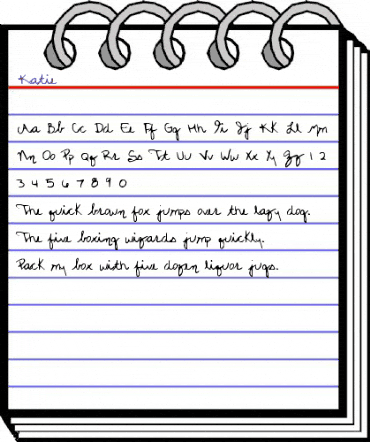 Katie
Aa Bb Cc Dd Ee Ff Gg Hh Ii Jj Kk Ll Mm
Nn Oo Pp Qq Rr Ss Tt Uu Vv Ww Xx Yy Zz 1 2
3 4 5 6 7 8 9 0
The quick brown fox jumps over the lazy dog.
The five boxing wizards jump quickly.
Pack my box with five dozen liquor jugs.